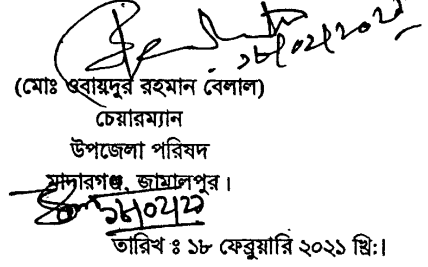 ১৮/০২/২০২১
(মোঃ ওবায়দুর রহমান বেলাল)
চেয়ারম্যান
উপজেলা পরিষদ
মাদারগঞ্জ, জামালপুর।
১৮/০২/২১
তারিখ ঃ ১৮ ফেব্রুয়ারি ২০২১ খ্রি:।